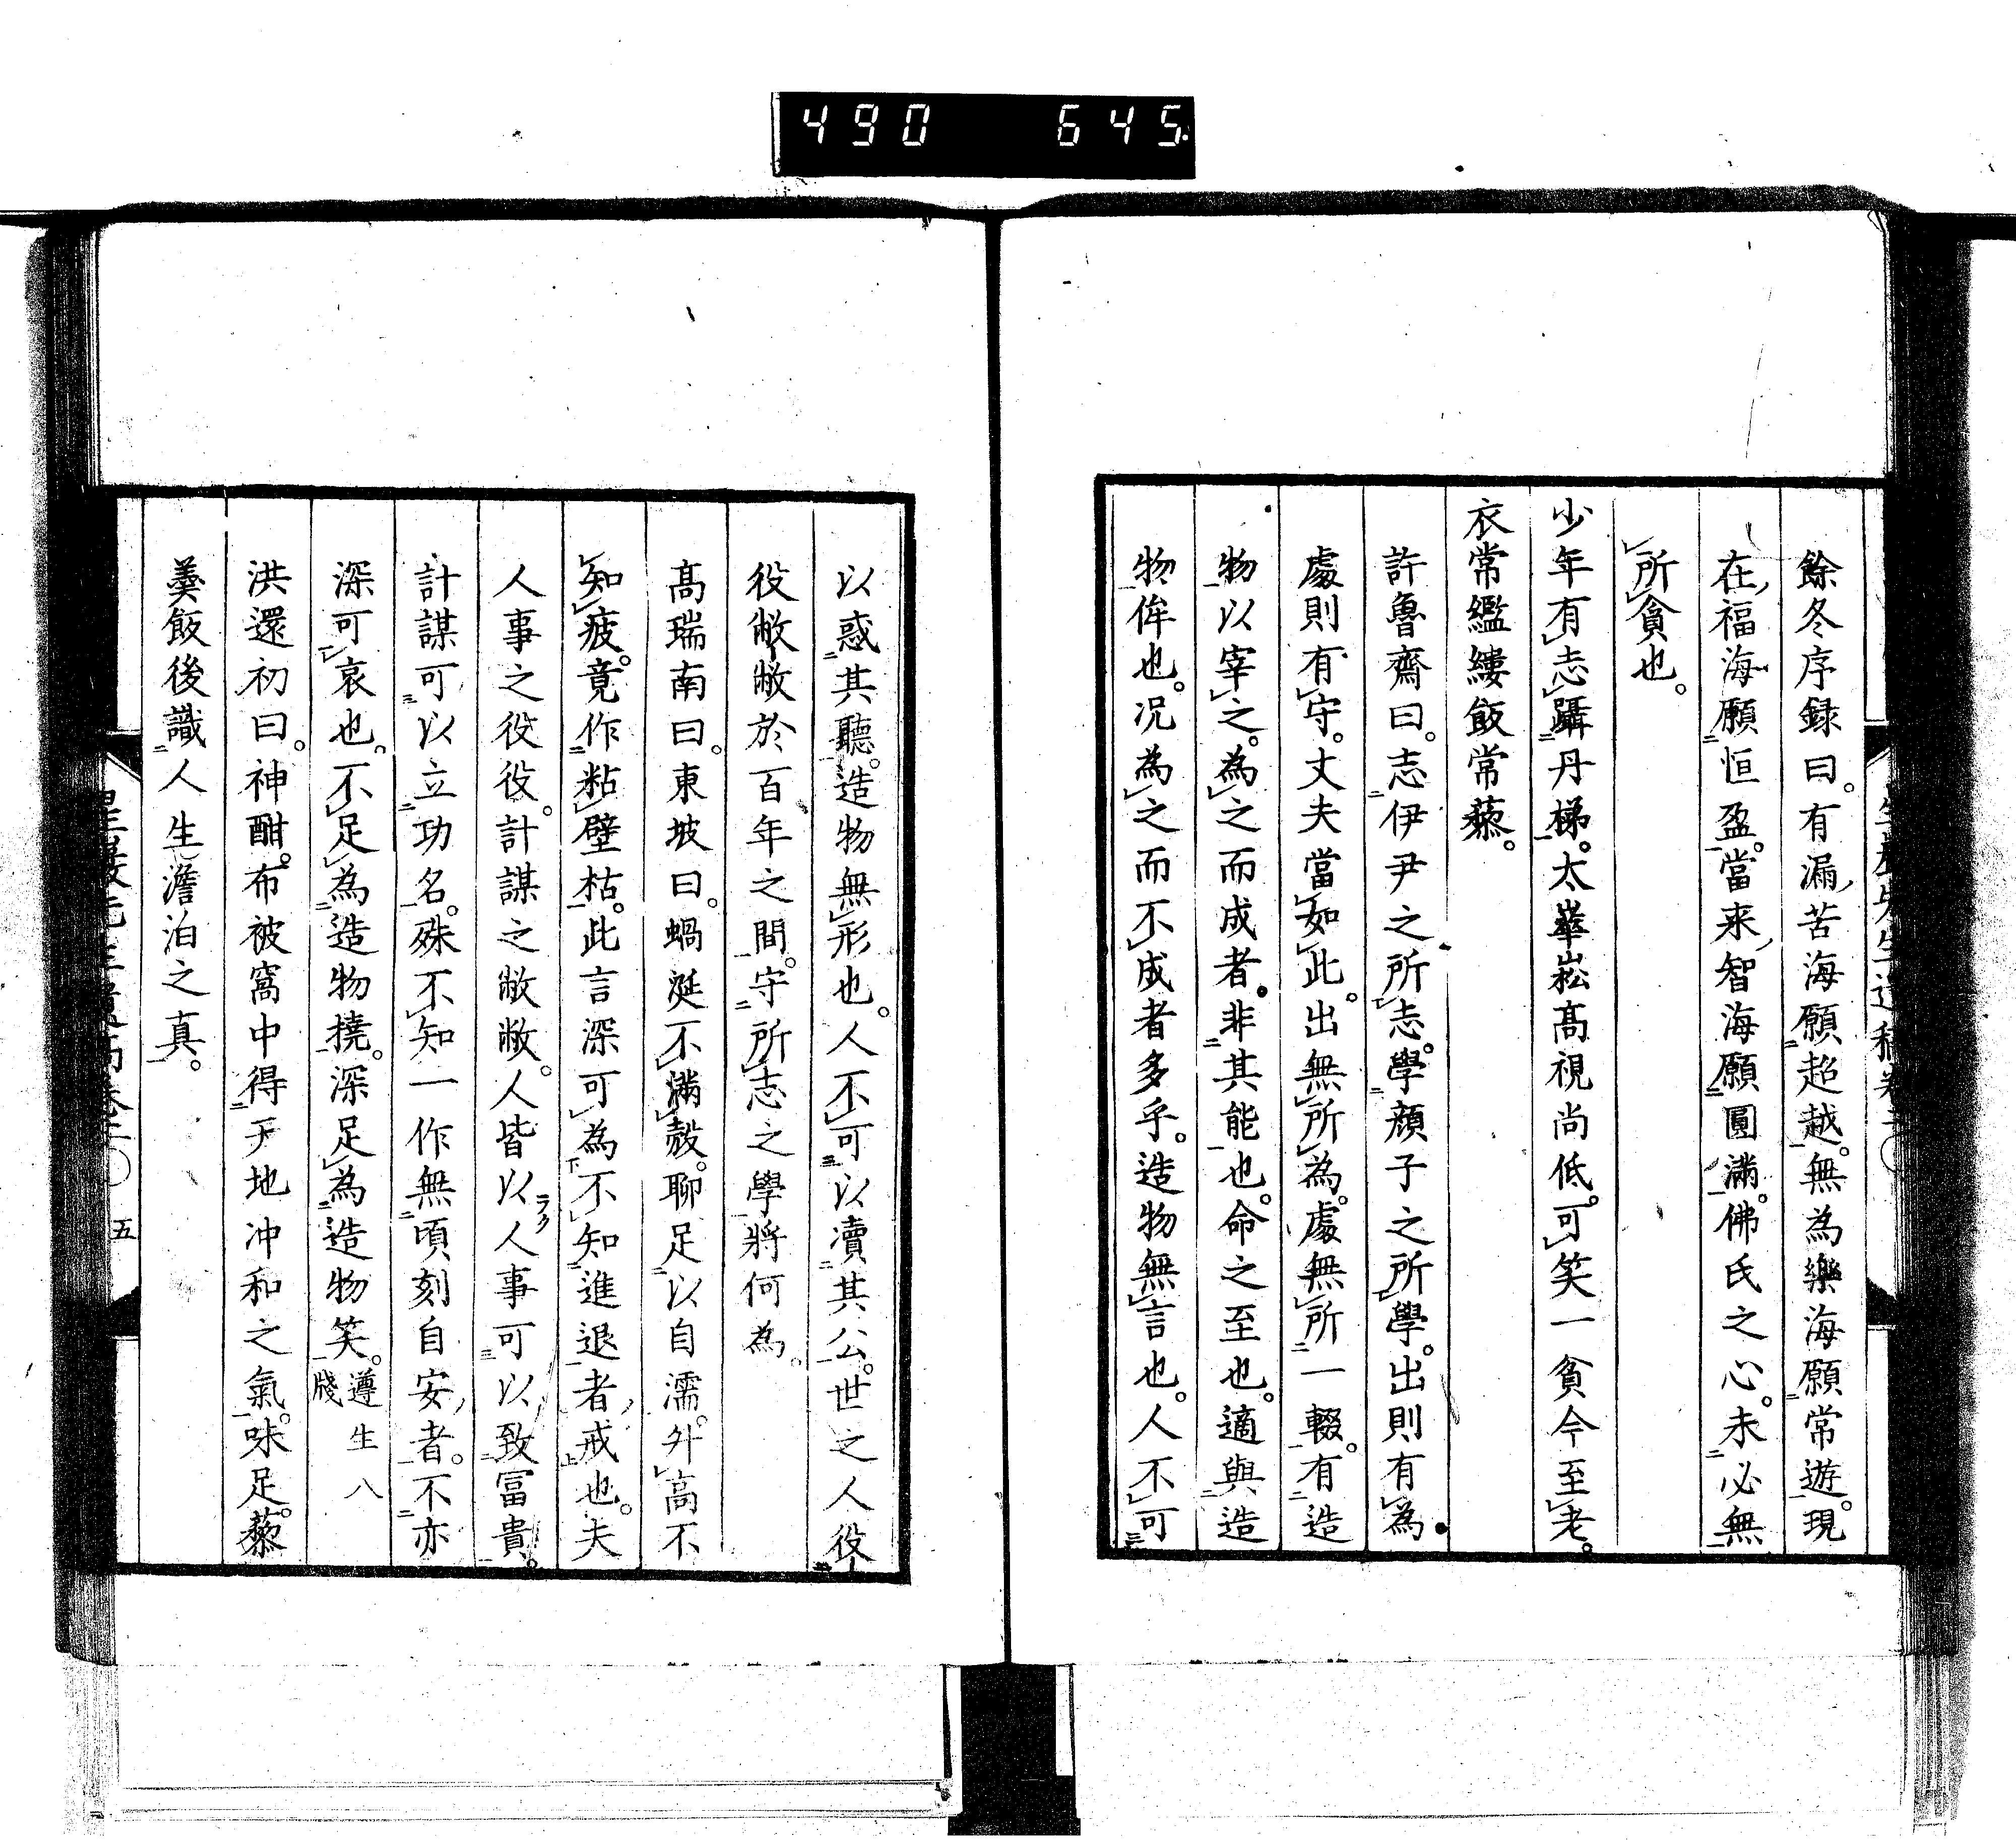 490 645
餘冬序録曰。有漏苦海願超越。無為樂海願常遊。現
在福海願恒盈。當来智海願圓滿。佛氏之心。未必無
所貪也。
少年有志躡丹梯。太華崧高視尚低。可笑一貧今至老。
衣常繿縷飯常藜。
許魯齋曰。志伊尹之所志。學顔子之所學。出則有為。
處則有守。丈夫當如此。出無所為。處無所一輟。有造
物以宰之。為之而成者。非其能也。命之至也。適與造
物侔也。况為之而不成者多乎。造物無言也。人不可
以惑其聽。造物無形也。人不可以瀆其公。世之人役
役敝敝於百年之間。守所志之學將何為。
髙瑞南曰。東坡曰。蝸涎不滿殼。聊足以自濡。升高不
知疲。竟作粘壁枯。此言深可為不知進退者戒也。夫
人事之役役。計謀之敝敝。人皆以ラク人事可以致冨貴。
計謀可以立功名。殊不知一作無頃刻自安者。不亦
深可哀也。不足為造物撓。深足為造物笑。遵生八
牋
洪還初曰。神酣。布被窩中得天地冲和之氣。味足。藜
羹飯後識人生澹泊之真。
五